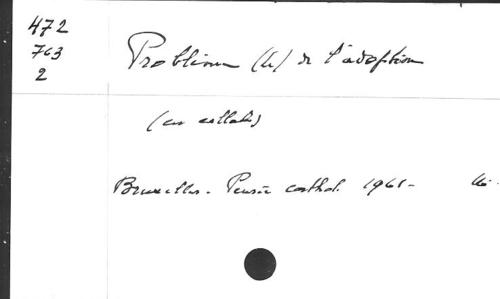 472
763
2
Problème (le) de l'adoption
(en collab.)
Bruxelles - Pensée cathol. 1961-